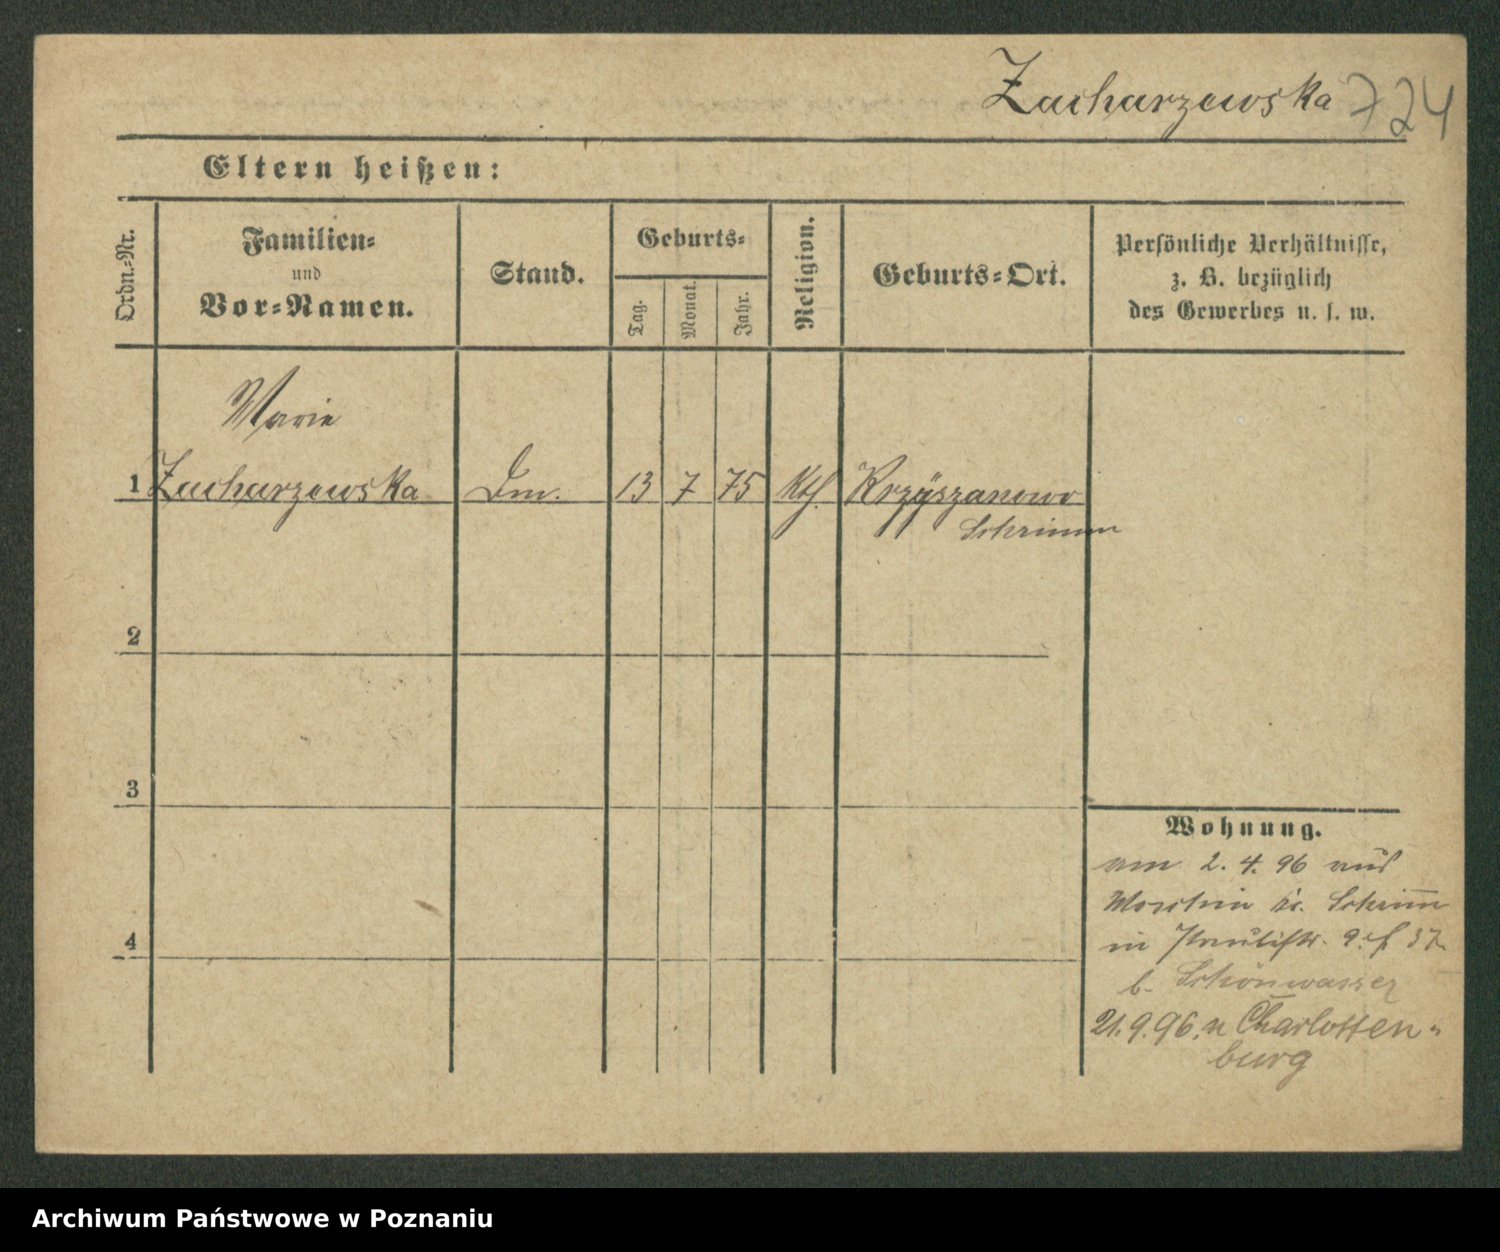 Zacharzewska 724
Eltern heißen:
Ordn.=Nr.
Familien=
und
Vor=Namen.
Stand.
Geburts=
Tag.
Monat.
Jahr.
Religion.
Geburts=Ort.
Persönliche Verhältnisse,
z. B. bezüglich
des Gewerbes u. s. w.
Marie
1 Zacharzewska 13 7 75 kth. Krzyszanowo
Schrimm
2
3
4
Wohnung.
am 2. 4. 96 aus
Moschin kr. Schrimm
in 9.
b. Schönwasser
21.9.96. n Charlotten=
burg
Archiwum Państwowe w Poznaniu